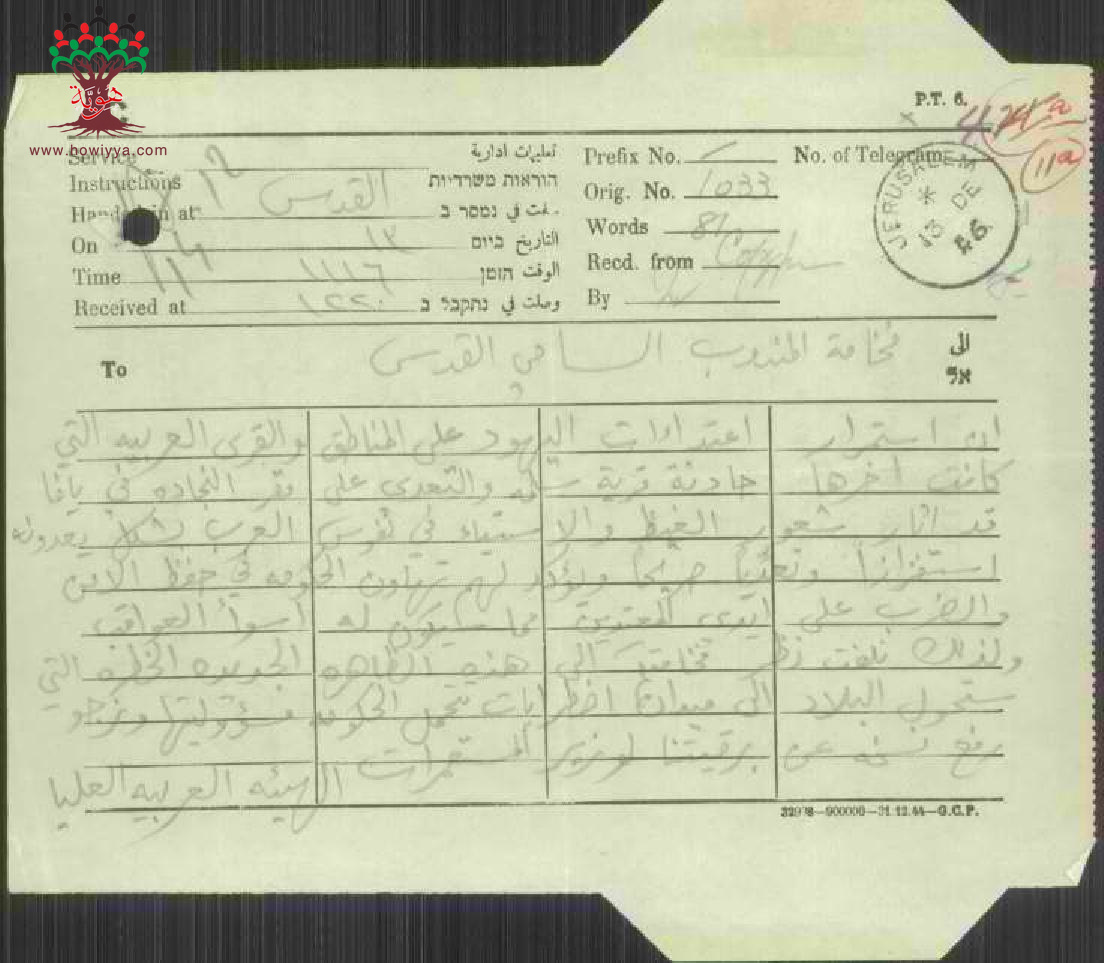 هوية
www.howiyya.com
P.T. 6.
474a
11a
Service تعليمات ادارية
Instructions הוראות משרדיות
Handed in at القدس سلمت في נמסר ב
On ١٣ التاريخ ביום
Time ١١١٦ الوقت הזמן
Received at ١٢٢٠ وصلت في נתקבל ב
Prefix No. No. of Telegram
Orig. No. 1033
Words 81
Recd. from
By
JERUSALEM
13 DE
46
To فخامة المندوب السامي القدس الى אל
ان استمرار اعتداءات اليهود على المناطق والقرى العربيه التي
كانت اخرها حادثة قرية سلمه والتعدى على مقر النجاده في يافا
قد اثار شعور الغيظ والاستياء في نفوس العرب بشكل يعدونه
استفزازا وتحديا صريحا ويؤكد لهم تهاون الحكومه في حفظ الامن
والضرب على ايدى المعتدين مما سيكون له اسوأ العواقب
ولذلك نلفت نظر فخامتكم الى هذه الظاهره الجديده الخطره التي
ستحول البلاد الى ميدان اضطرابات تتحمل الحكومه مسؤوليتها ونرجو
رفع نسخه عن برقيتنا لوزير المستعمرات
الهيئه العربيه العليا
32978—900000—31.12.44—G.C.P.